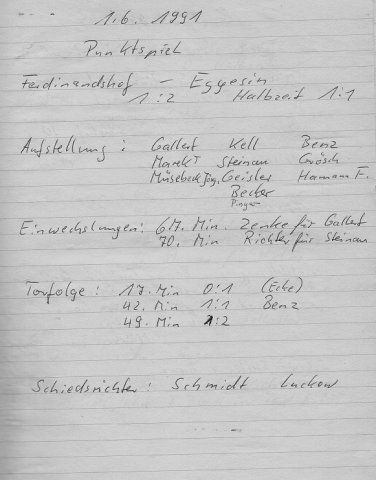 1.6. 1991
Punktspiel
Ferdinandshof - Eggesin
1:2 Halbzeit 1:1
Aufstellung: Gallert Kell Benz
Marekt Steinau Grösch
Müsebeck Jörg. Geisler Hamann F.
Becker
Einwechslungen: 67. Min. Zenke für Gallert
70. Min Richter für Steinau
Torfolge: 17. Min 0:1 (Ecke)
42. Min 1:1 Benz
49. Min 1:2
Schiedsrichter: Schmidt Luckow